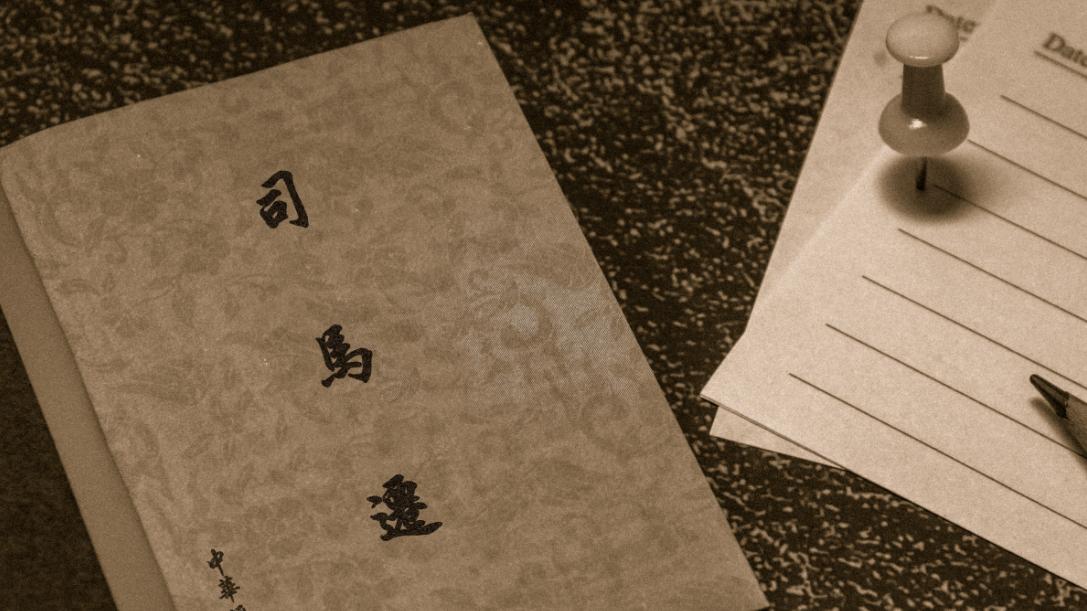 司馬遷
中華
Date
Date